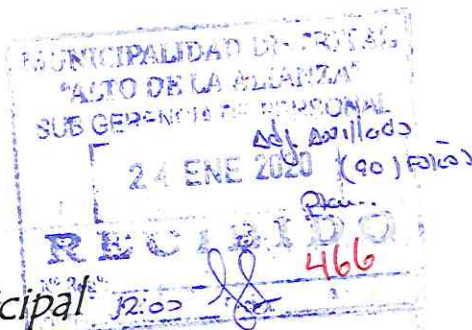 MUNICIPALIDAD DISTRITAL
"ALTO DE LA ALIANZA"
SUB GERENCIA DE PERSONAL
Adj
24 ENE 2020 (90) Folios
RECIBIDO
466
cipal 12:00